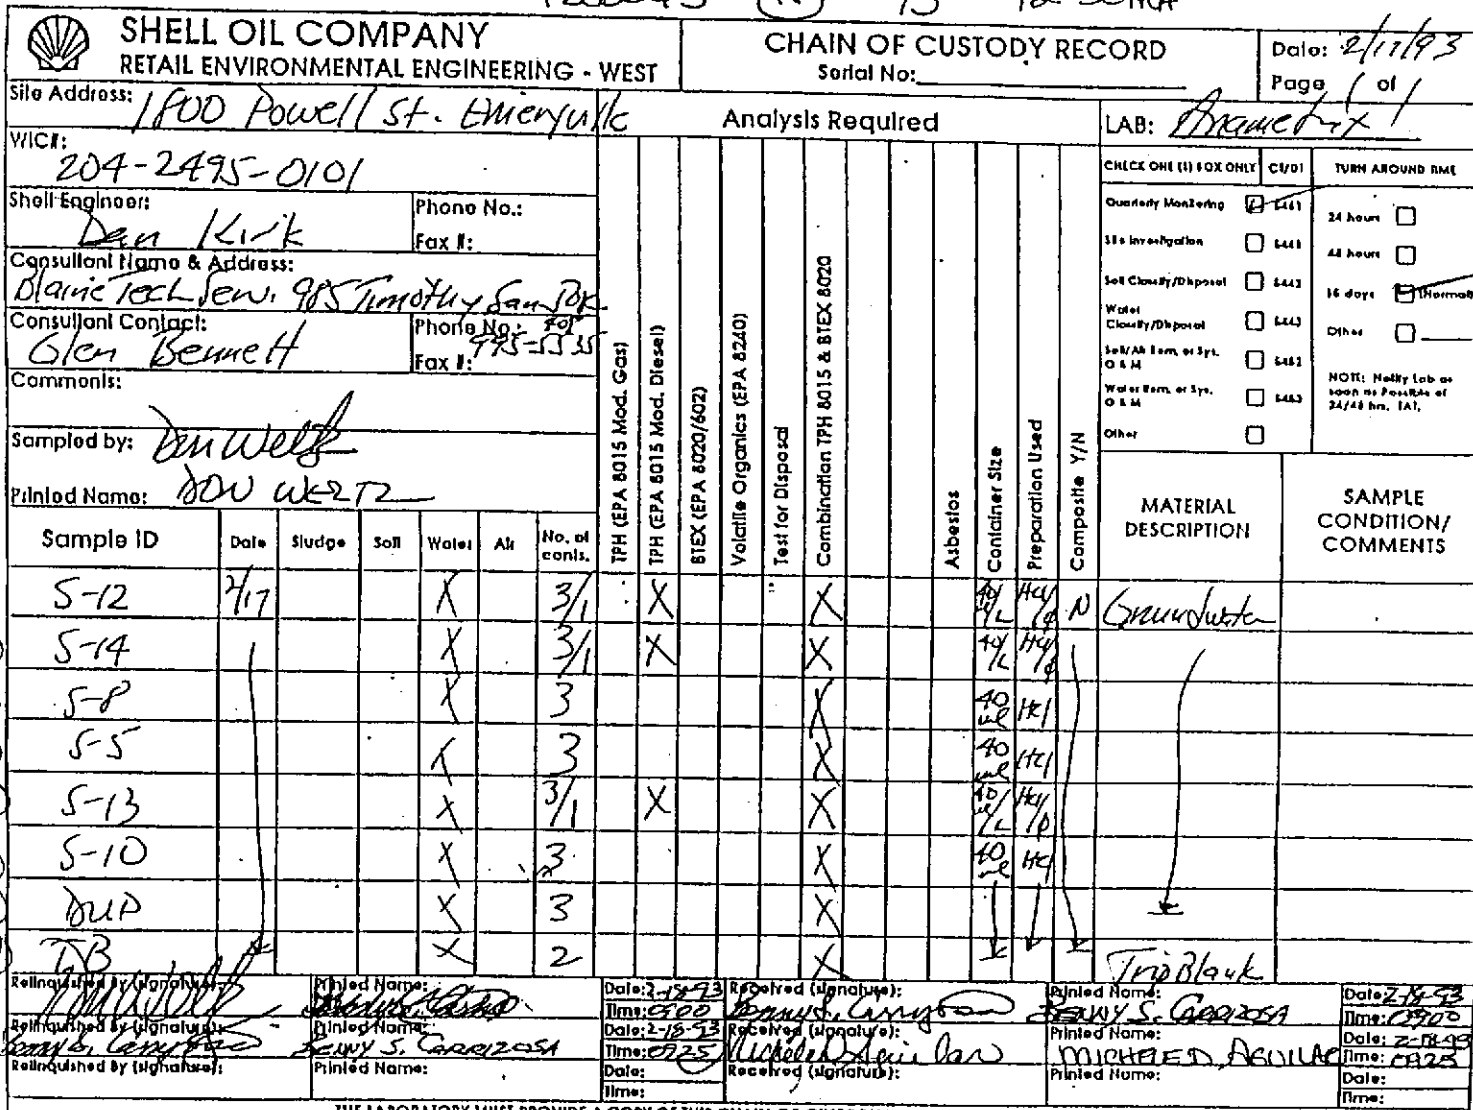 SHELL OIL COMPANY
RETAIL ENVIRONMENTAL ENGINEERING - WEST
CHAIN OF CUSTODY RECORD
Serial No:
Date: 2/17/93
Page 1 of 1
Site Address: 1800 Powell St. Emeryville
Analysis Required
LAB: Anametrix
WIC#: 204-2495-0101
Shell Engineer: Dan Kirk
Phone No.:
Fax #:
Consultant Name & Address:
Blaine Tech Serv. 985 Timothy San Jose
Consultant Contact: Glen Bennett
Phone No.: 408 995-5535
Fax #:
Comments:
Sampled by: Don Wertz
Printed Name: DON WERTZ
CHECK ONE (1) BOX ONLY CT/DT
TURN AROUND TIME
Quarterly Monitoring 6441
Site Investigation 6441
Soil Classify/Disposal 6442
Water Classify/Disposal 6443
Soil/Air Rem. or Sys. O & M 6452
Water Rem. or Sys. O & M 6453
Other
24 hours
48 hours
16 days (Normal)
Other
NOTE: Notify Lab as soon as Possible of 24/48 hrs. TAT.
TPH (EPA 8015 Mod. Gas)
TPH (EPA 8015 Mod. Diesel)
BTEX (EPA 8020/602)
Volatile Organics (EPA 8240)
Test for Disposal
Combination TPH 8015 & BTEX 8020
Asbestos
Container Size
Preparation Used
Composite Y/N
MATERIAL DESCRIPTION
SAMPLE CONDITION/ COMMENTS
Sample ID Date Sludge Soil Water Air No. of conts.
S-12 2/17 X 3/1 X X 40/L HCl/φ N Groundwater
S-14 X 3/1 X X 40/L HCl/φ
S-8 X 3 X 40 ml HCl
S-5 X 3 X 40 ml HCl
S-13 X 3/1 X X 40 ml/L HCl/φ
S-10 X 3 X 40 ml HCl
DUP X 3 X
TB X 2 X Trip Blank
Relinquished By (signature): Printed Name: Date: 2-18-93 Time: 0900 Received (signature): Benny S. Carrizosa Printed Name: BENNY S. CARRIZOSA Date: 2-18-93 Time: 0900
Relinquished By (signature): Benny S. Carrizosa Printed Name: BENNY S. CARRIZOSA Date: 2-18-93 Time: 0925 Received (signature): Michele D Aguilar Printed Name: MICHELE D. AGUILAR Date: 2-18-93 Time: 0925
Relinquished By (signature): Printed Name: Date: Time: Received (signature): Printed Name: Date: Time: